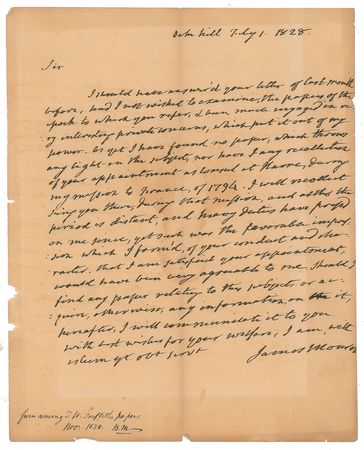 Oak hill Feby 1. 1828.
Sir
I should have answer'd your letter of last month
before, had I not wished to examine, the papers of the
epoch to which you refer, & been much engag'd in
of interesting private concerns, which put it out of my
power. As yet I have found no paper, which throws
any light on the subject, nor have I any recollection
of your appointment as Consul at Havre, during
my mission to France, of 1794. I well recollect
seeing you there, during that mission, and altho the
period is distant, and heavy duties have press'd
on me since, yet such was the favorable impres-
sion which I form'd, of your conduct and cha-
racter, that I am satisfied your appointment,
would have been very agreeable to me. Should I
find any paper relating to this subject, or ac-
quire, otherwise, any information on it,
hereafter, I will communicate it to you
with best wishes for your welfare, I am, with
esteem yr. obt servt
James Monroe
from among J. W. Griffith's papers
Nov: 1838. B.M.